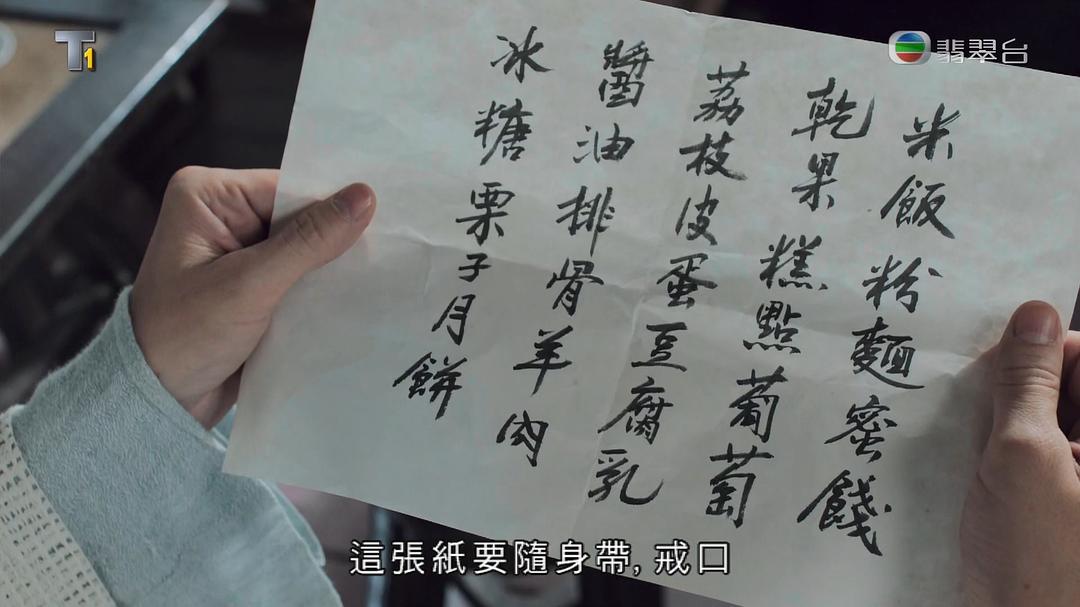 T1
翡翠台
米飯粉麵蜜餞
乾果糕點葡萄
荔枝皮蛋豆腐乳
醬油排骨羊肉
冰糖栗子月餅
這張紙要隨身帶, 戒口